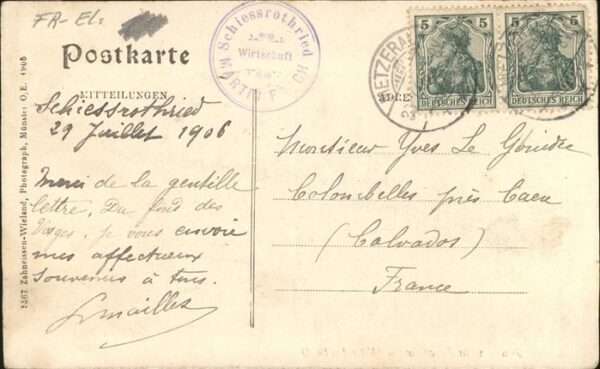 FR-EL:
Postkarte
MITTEILUNGEN
Schiessrothried
29 Juillet 1906
Merci de la gentille
lettre. Du fond des
Vosges, je vous envoie
mes affectueux
souvenirs à tous.
Schiessrothried
Wirtschaft
MARTIN
5 5
DEUTSCHES REICH
5 5
DEUTSCHES REICH
METZERAL
Monsieur Yves Le
Colombelles près Caen
(Calvados)
France
1367 Zahneissen-Wieland, Photograph, Münster O.E. 1905